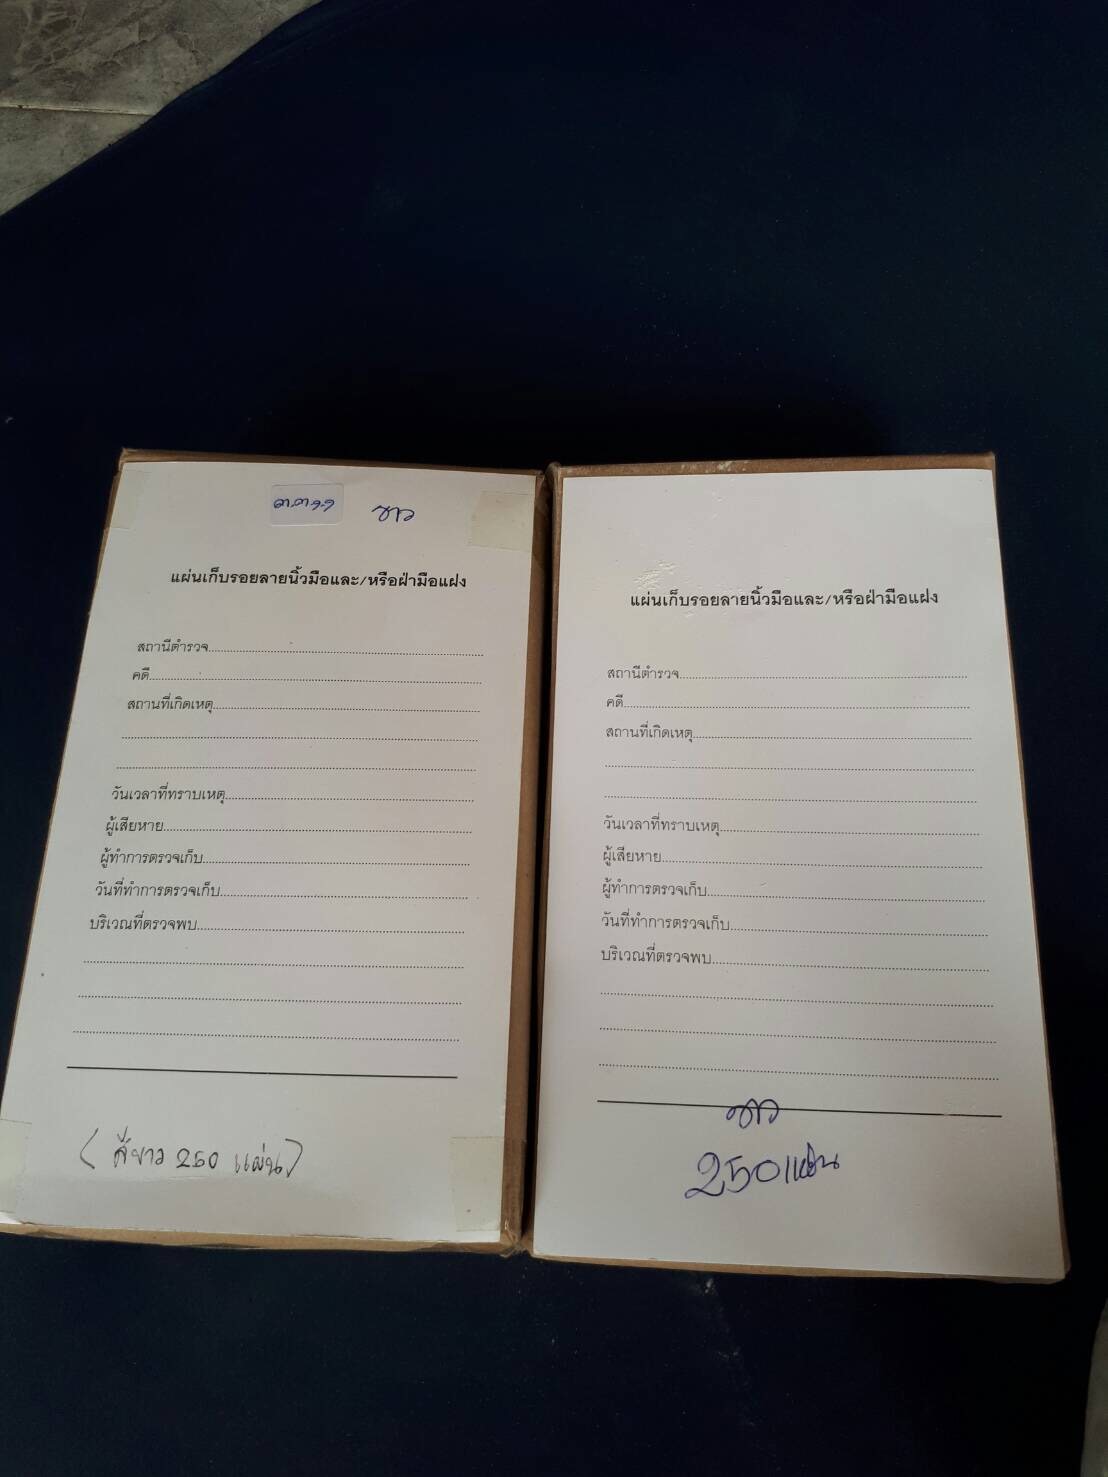 ขาว
แผ่นเก็บรอยลายนิ้วมือและ/หรือฝ่ามือแฝง
สถานีตำรวจ
คดี
สถานที่เกิดเหตุ
วันเวลาที่ทราบเหตุ
ผู้เสียหาย
ผู้ทำการตรวจเก็บ
วันที่ทำการตรวจเก็บ
บริเวณที่ตรวจพบ
(สีขาว 250 แผ่น)
แผ่นเก็บรอยลายนิ้วมือและ/หรือฝ่ามือแฝง
สถานีตำรวจ
คดี
สถานที่เกิดเหตุ
วันเวลาที่ทราบเหตุ
ผู้เสียหาย
ผู้ทำการตรวจเก็บ
วันที่ทำการตรวจเก็บ
บริเวณที่ตรวจพบ
ขาว
250 แผ่น